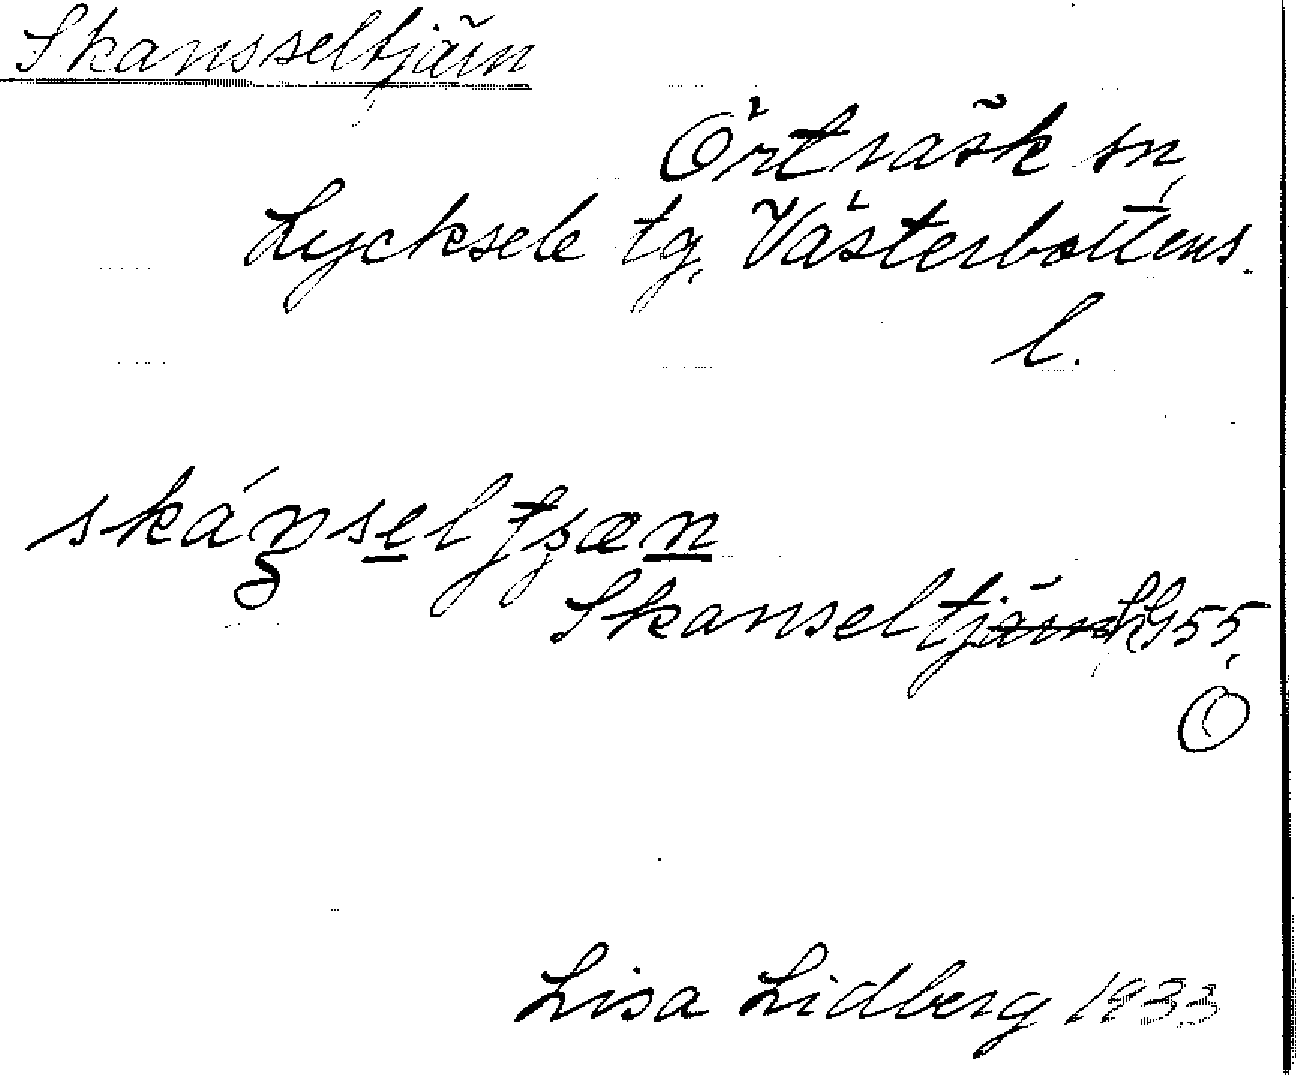 Skansseltjärn
Örträsk sn,
Lycksele tg, Västerbottens.
l.
skánsel tjæn
Skanseltjärn SG 55,
Ö
Lisa Lidberg 1933